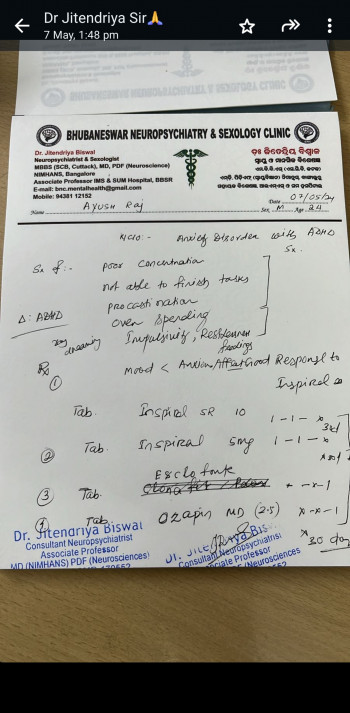 Dr Jitendriya Sir🙏
7 May, 1:48 pm
BHUBANESWAR NEUROPSYCHIATRY & SEXOLOGY CLINIC
Dr. Jitendriya Biswal
Neuropsychiatrist & Sexologist
MBBS (SCB, Cuttack), MD, PDF (Neuroscience)
NIMHANS, Bangalore
Associate Professor IMS & SUM Hospital, BBSR
E-mail: bnc.mentalhealth@gmail.com
Mobile: 94381 12152
ଡ଼ାଃ ଜିତେନ୍ଦ୍ରିୟ ବିଶ୍ୱାଳ
ସ୍ନାୟୁ ଓ ମାନସିକ ବିଶେଷଜ୍ଞ
Date 07/05/24
Name Ayush Raj Sex M Age 24
Anxiety Disorder with ADHD
Sx.
Sx of :- poor concentration
not able to finish tasks
procastination
Δ: ADHD over spending
Day dreaming Impulsivity, Restlessness
feelings
Rx mood < Anxious Affect Good Response to
Inspiral
① Tab. Inspiral SR 10 1-1-x
② Tab. Inspiral 5mg 1-1-x
③ Tab. x-x-1
④ Tab. Ozapin MD (2.5) x-x-1
x 30 day
Dr. Jitendriya Biswal
Consultant Neuropsychiatrist
Associate Professor
MD (NIMHANS) PDF (Neurosciences)
Consultant Neuropsychiatrist
Associate Professor